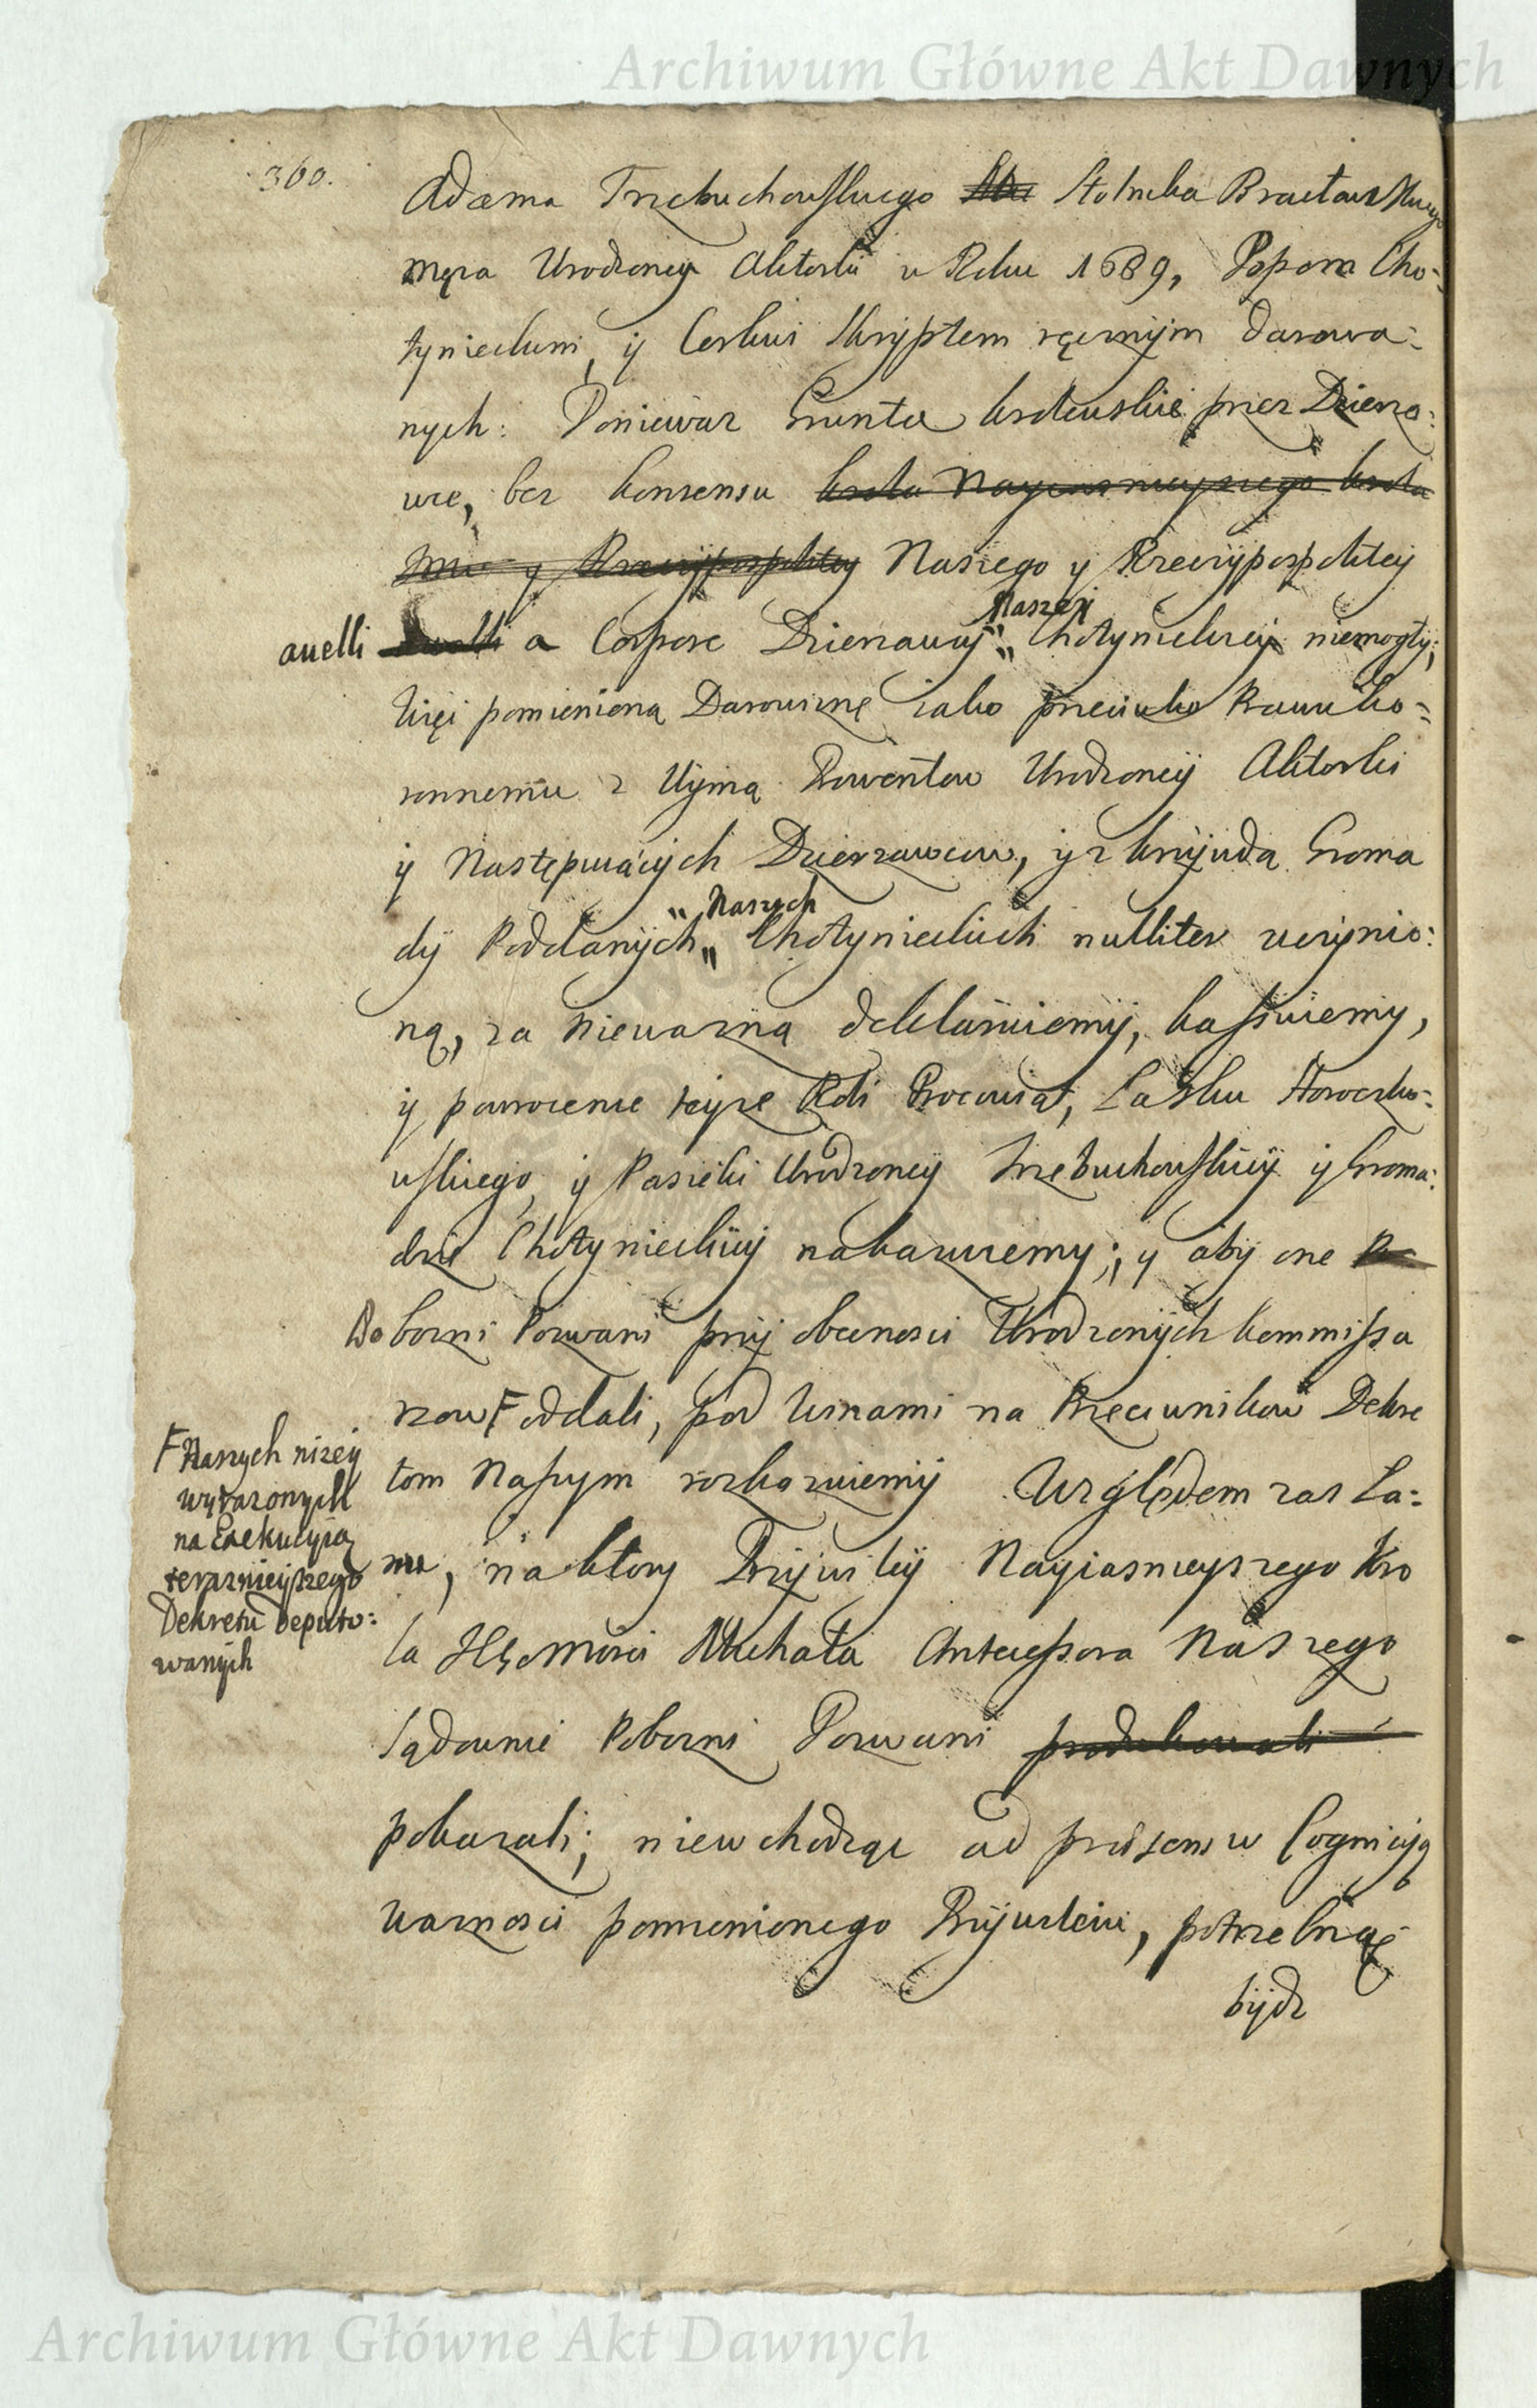 Archiwum Główne Akt Dawnych
360.
Adama Trzebuchowskiego Stolnika Bracławskiego
męza Urodzoney Aktorki w Roku 1689, Popom Cho=
tynieckim, y Cerkwi Skryptem ręcznym darowa=
nych: Poniewaz Grunta krolewskie przez Dzierza=
wce, bez konsensu krola Nayiasnieyszego krola
Jmci y Rzeczypospolitey Naszego y Rzeczypospolitey
avelli avelli a Corpore Dzierzawy Naszey Chotynieckiey niemogły;
więc pomienioną Darowiznę iako przeciwko Prawu ko=
ronnemu z Uymą Prowentow Urodzoney Aktorki
y Następuiących Dzierzawcow, y z krzywdą Groma
dy Poddanych Naszych Chotynieckich nulliter uczynio=
ną, za niewazną deklaruiemy, kassuiemy,
y powrocenie teyze Roli Procowiat, Lasku Horoczko=
wskiego, y Pasieki Urodzoney Trzebuchowskiey y Groma=
dzie Chotynieckiey nakazuiemy; y aby one
Poborni Pozwani przy obecnosci Urodzonych kommissa
rzow F oddali, pod winami na Przeciwnikow Dekre
tom Naszym rozkazuiemy Względem zas Ła=
nu, na ktory Przywiley Nayiasnieyszego Kro
la JEgoMosci Michała Antecessora Naszego
Sądownie Poborni Pozwani produkowali
pokazali; niewchodząc ad praesens w Cognicyą
waznosci pomienionego Przywileiu, potrzebną
bydz
F Naszych nizey
wyrazonych
na Exekucyią
teraznieyszego
Dekretu deputo=
wanych
Archiwum Główne Akt Dawnych